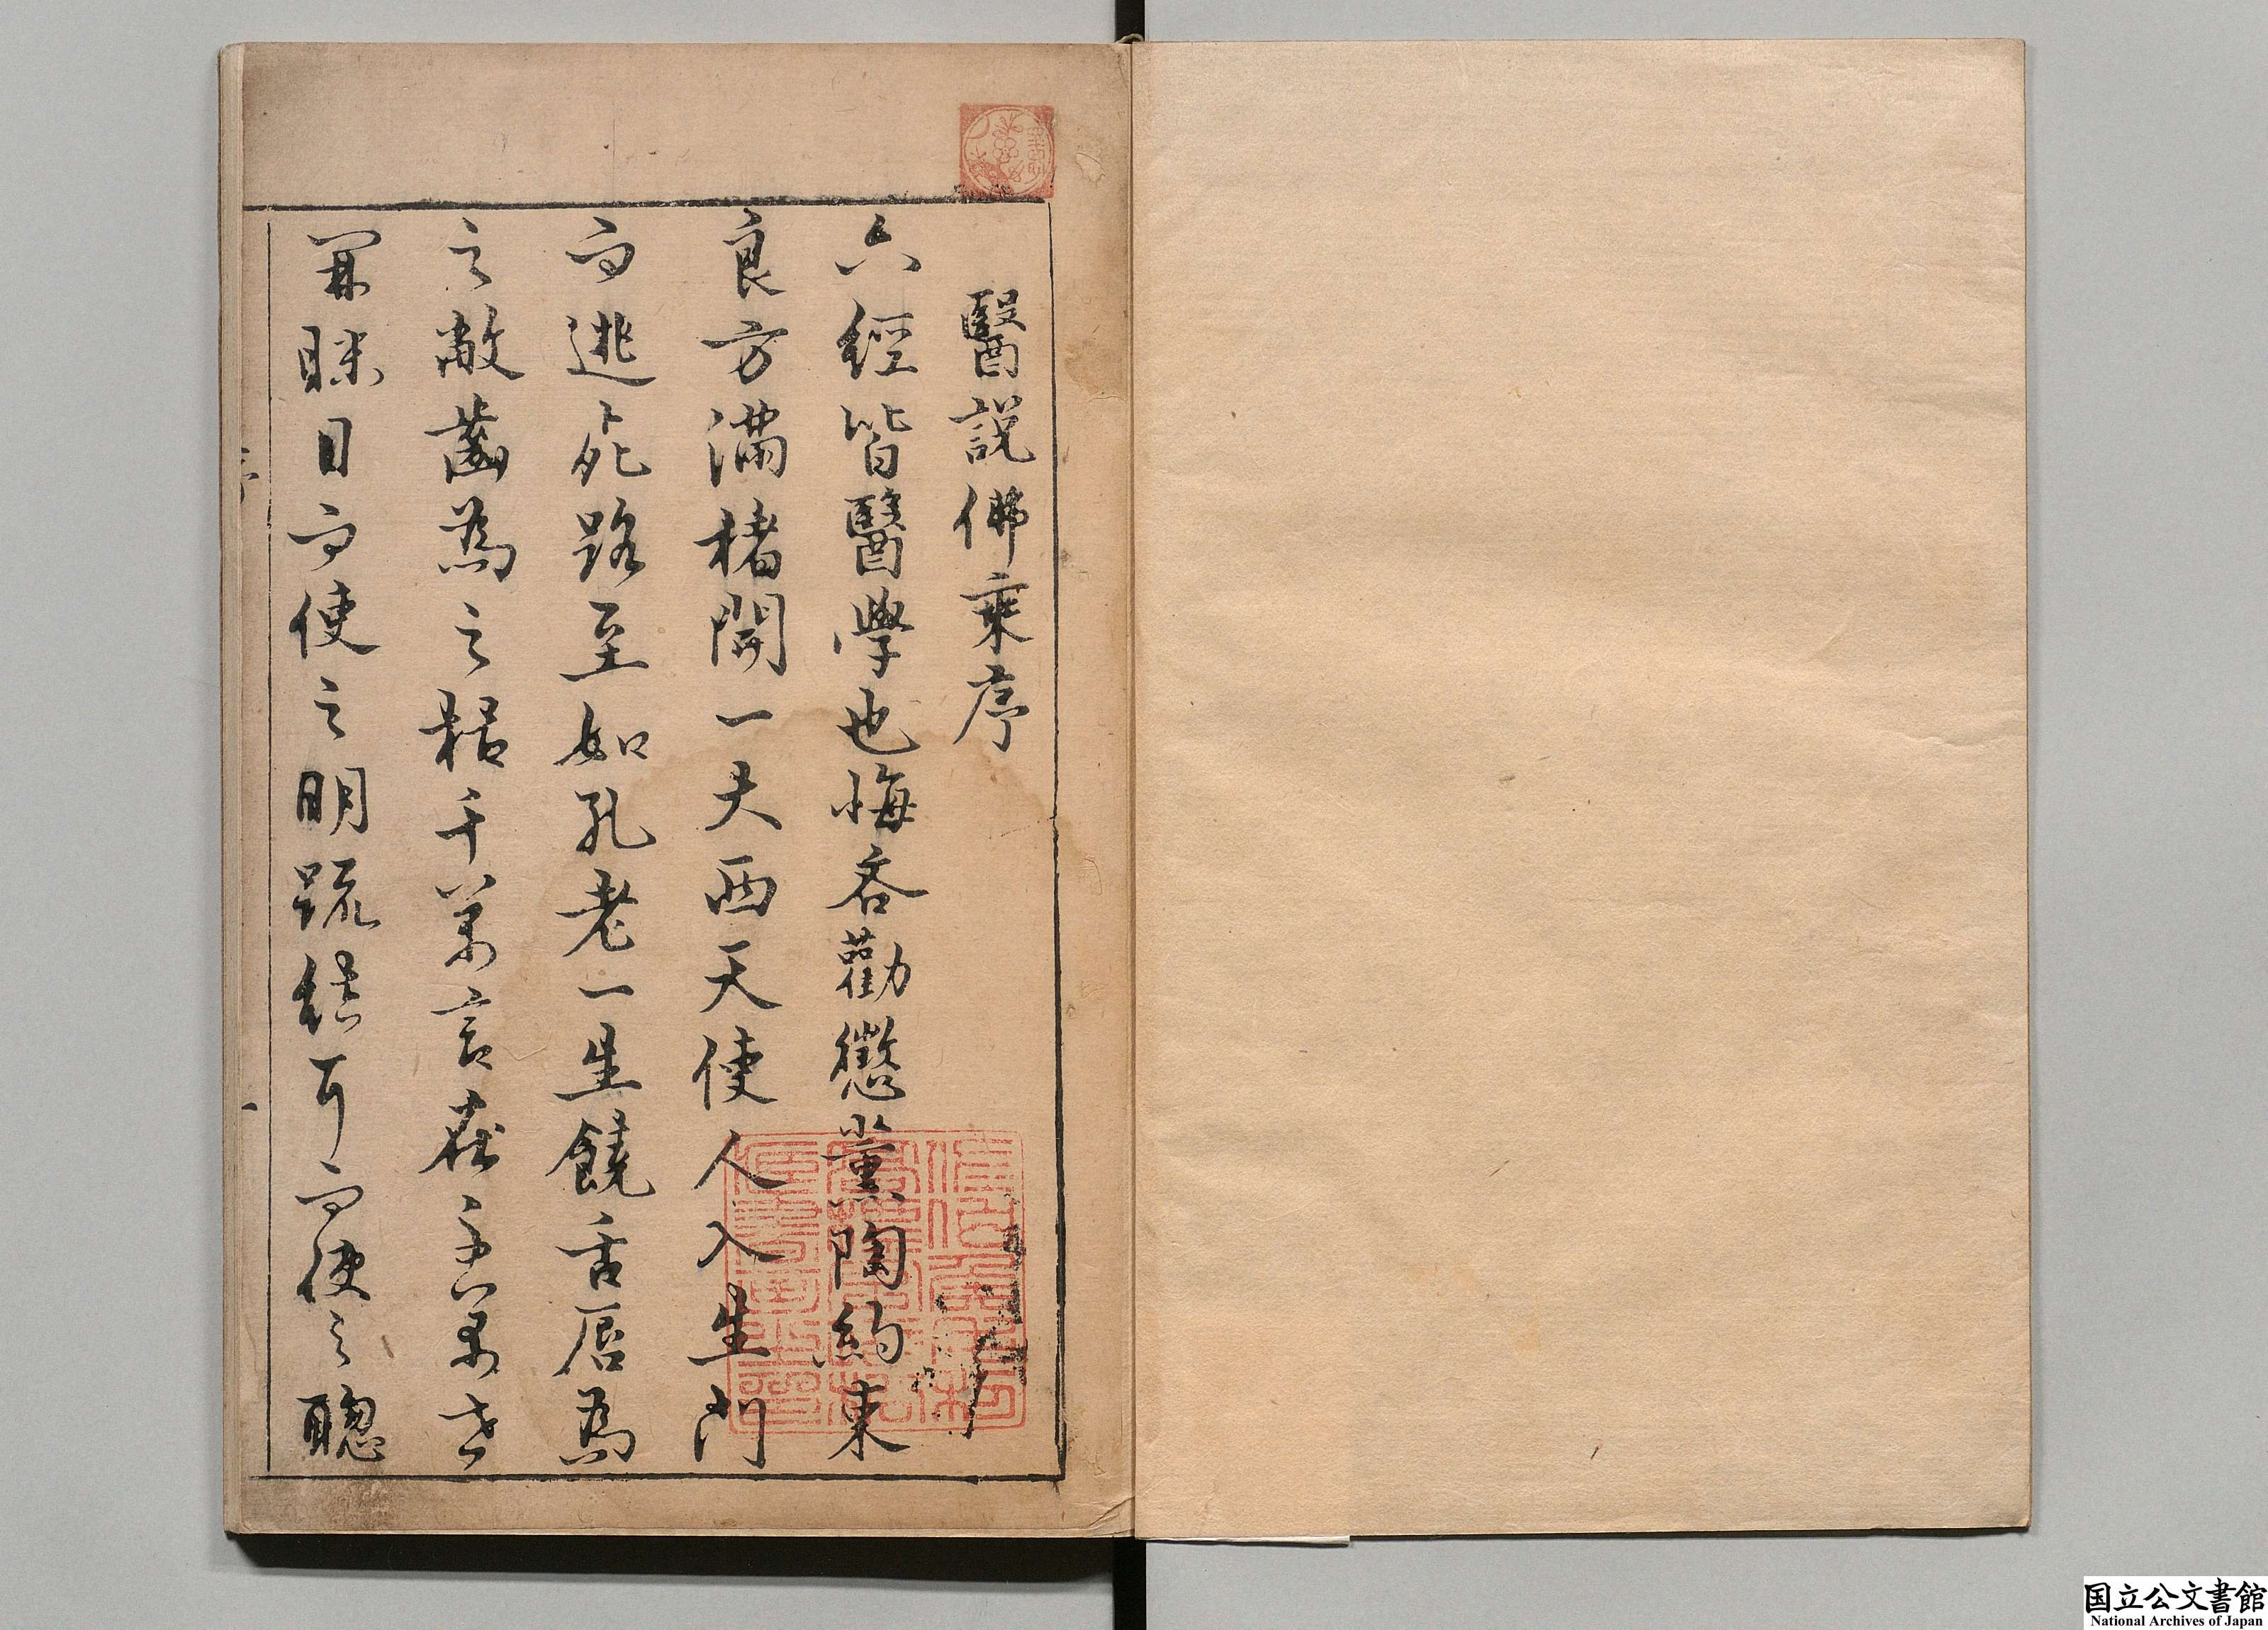 醫說佛乘序
六經皆醫學也悔吝勸懲薰陶約束
良方滿楮開一大西天使人入生門
而逃死路至如孔老一生饒舌唇為
之敝齒為之豁千萬言在之萬世
眯目而使之明疏結耳而使之聰
国立公文書館
National Archives of Japan